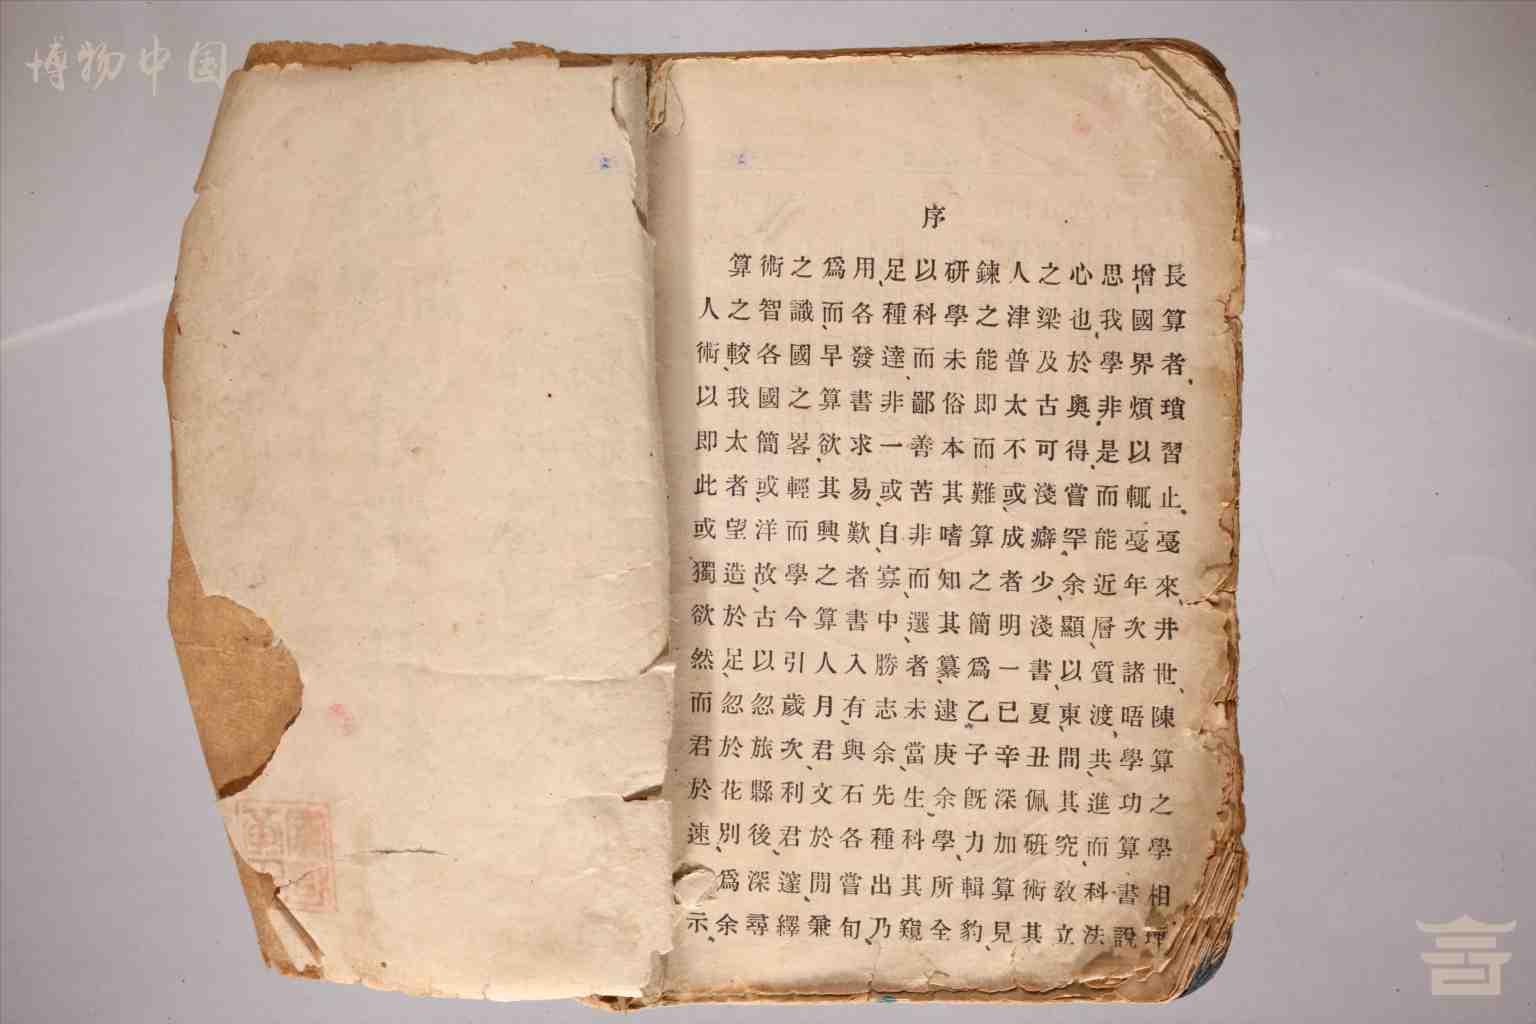 博物中国
序
算術之爲用、足以研鍊人之心思、增長
人之智識、而各種科學之津梁也、我國算
術、較各國早發達、而未能普及於學界者、
以我國之算書非鄙俗即太古奥、非煩瑣
即太簡畧、欲求一善本而不可得、是以習
此者、或輕其易、或苦其難、或淺嘗而輒止、
或望洋而興歎、自非嗜算成癖、罕能戞戞
獨造、故學之者寡、而知之者少、余近年來、
欲於古今算書中、選其簡明淺顯、層次井
然、足以引人入勝者、纂爲一書、以質諸世、
而忽忽歲月、有志未逮、乙巳夏、東渡、晤陳
君於旅次、君與余當庚子辛丑間、共學算
於花縣利文石先生、余旣深佩其進功之
速、別後、君於各種科學、力加硏究、而算學
爲深邃、閒嘗出其所輯算術敎科書相
示、余尋繹兼旬、乃窺全豹、見其立法說理